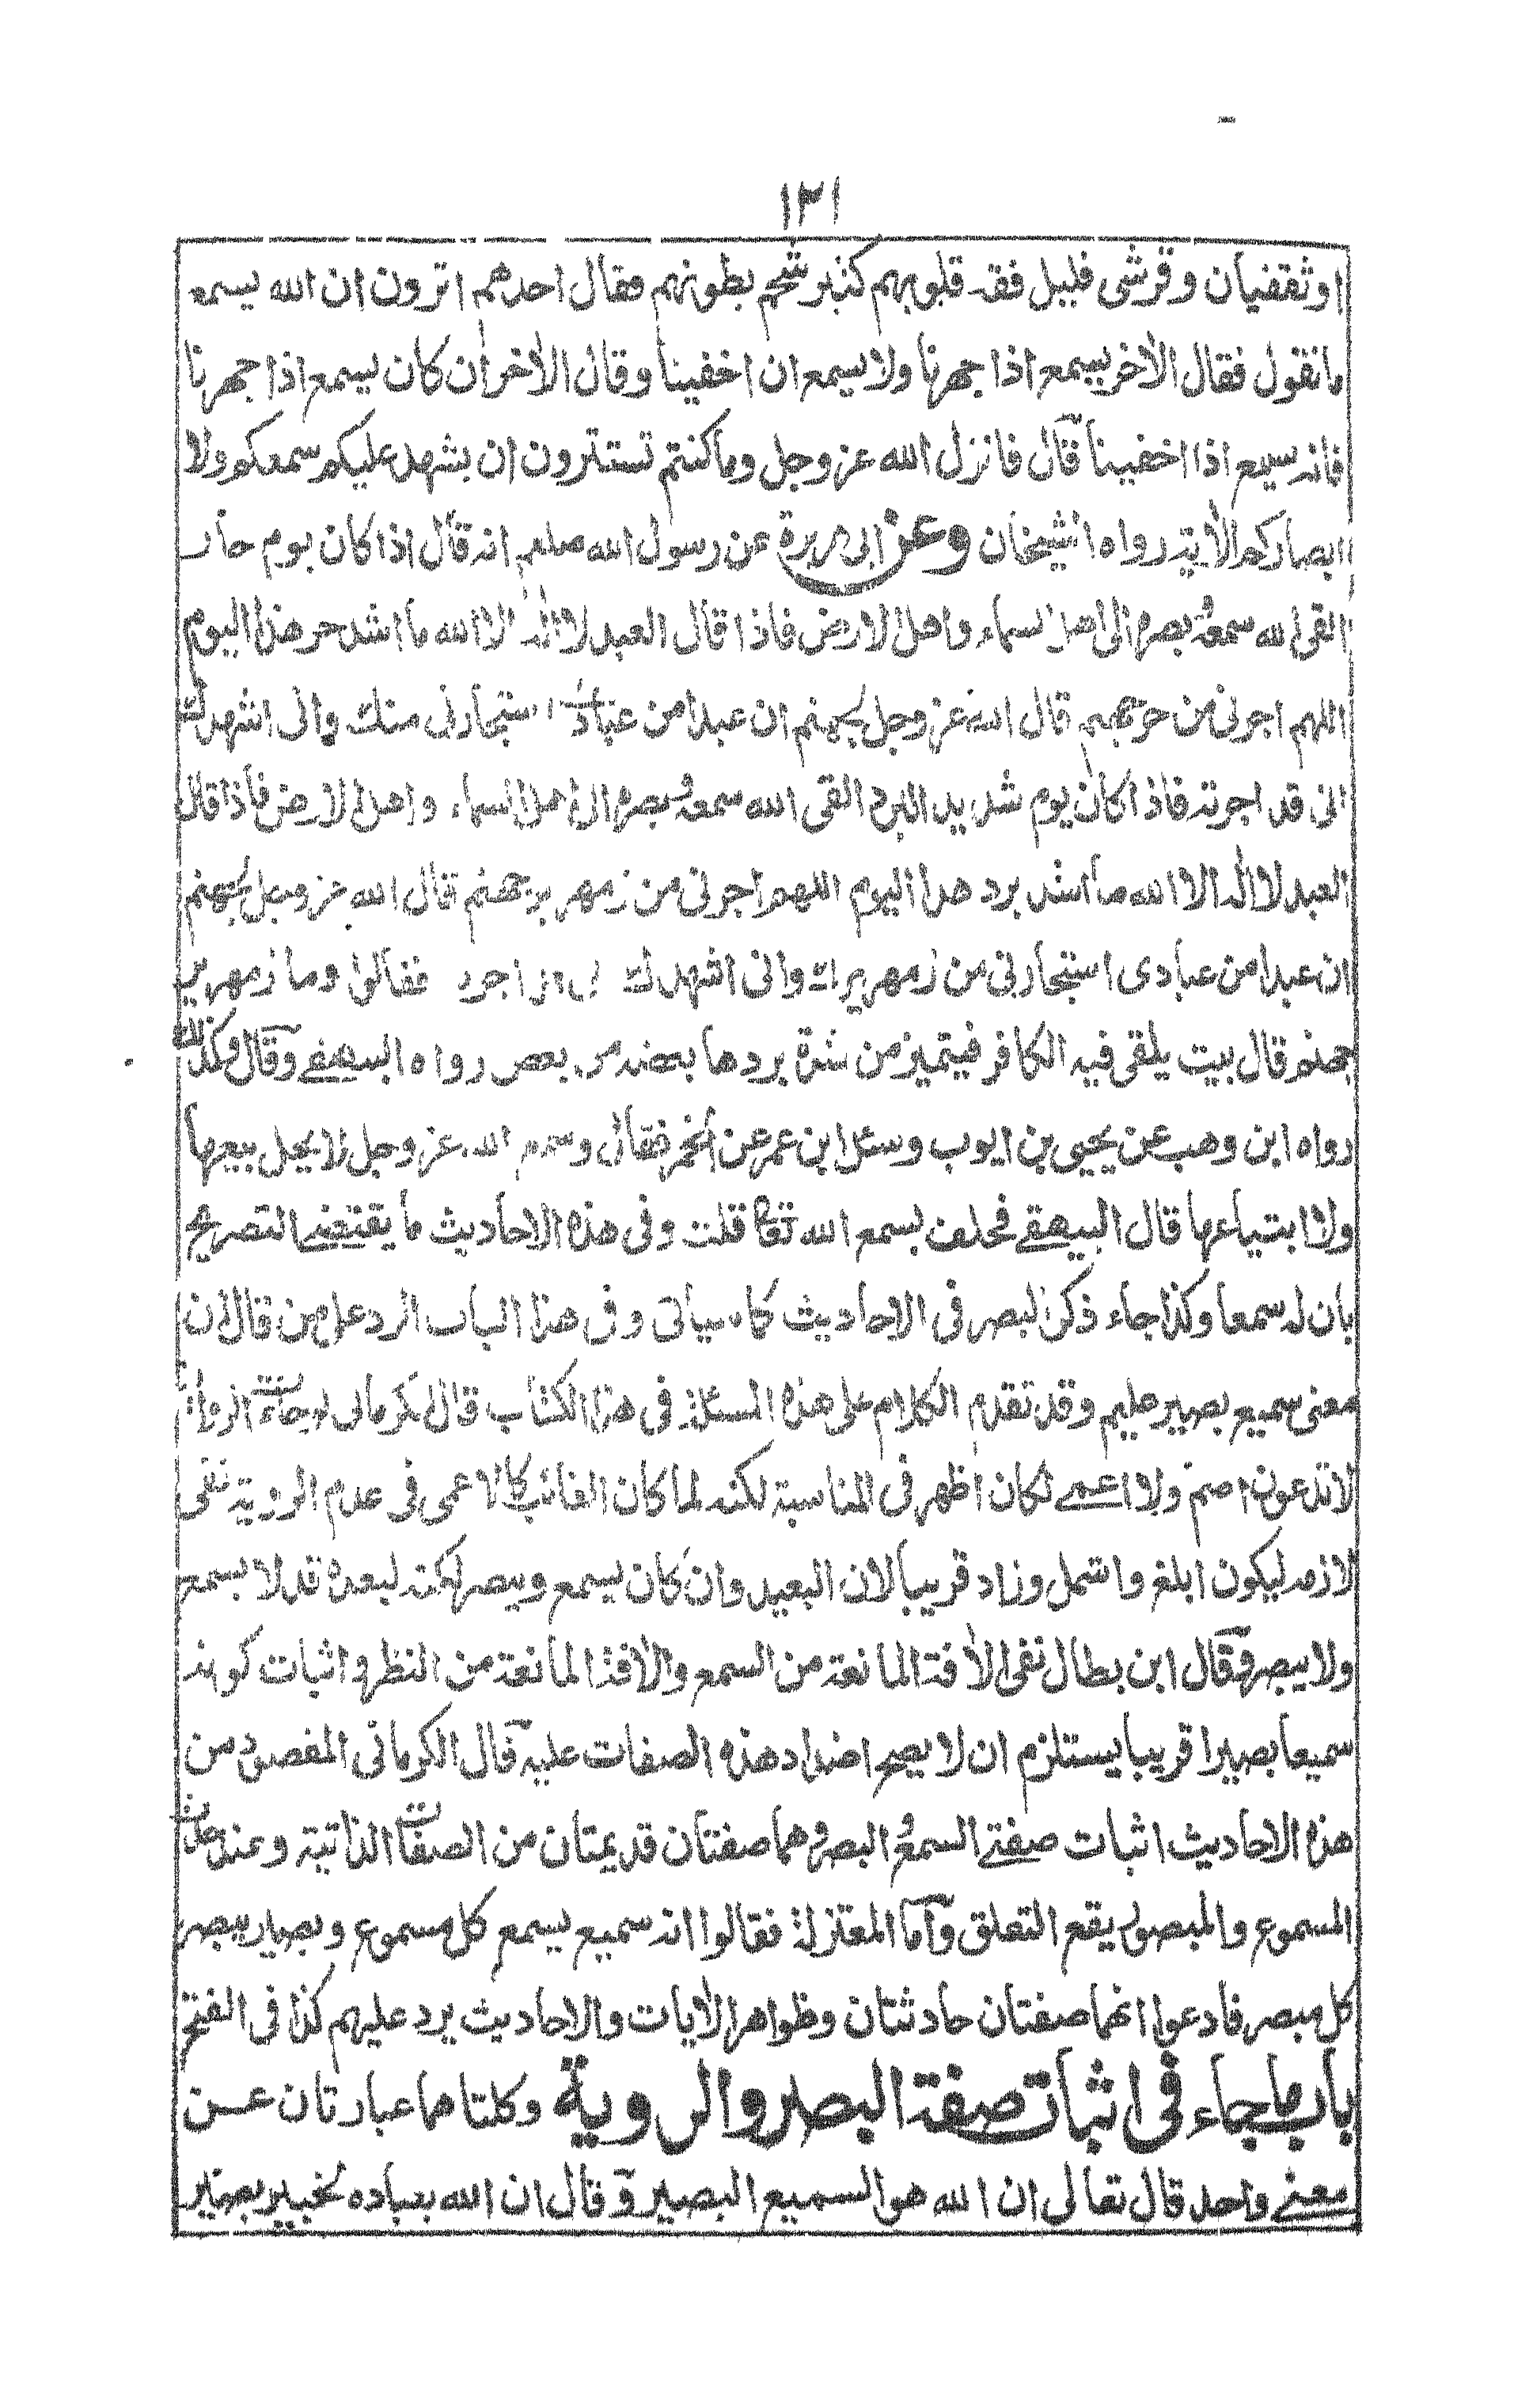 ١٣١
او ثقفيان وقرشى قليل فقه قلوبهم كثير شحم بطونهم فقال احدهم اترون ان الله يسمع
ما نقول فقال الأخر يسمع اذا جهرنا ولا يسمع ان اخفينا وقال الأخر ان كان يسمع اذا جهرنا
فانه سميع اذا اخفينا قال فانزل الله عز وجل وما كنتم تستترون ان يشهد عليكم سمعكم ولا
ابصاركم الأية رواه الشيخان وعن ابى هريرة عن رسول الله صلعم انه قال اذا كان يوم حار
القى الله سمعه وبصره الى اهل السماء واهل الارض فاذا قال العبد لا اله الا الله ما اشد حر هذا اليوم
اللهم اجرنى من حر جهنم قال الله عز وجل لجهنم ان عبدا من عبادى استجارنى منك وانى اشهدك
انى قد اجرته فاذا كان يوم شديد البرد القى الله سمعه وبصره الى اهل السماء واهل الارض فاذا قال
العبد لا اله الا الله ما اشد برد هذا اليوم اللهم اجرنى من زمهرير جهنم قال الله عز وجل لجهنم
ان عبدا من عبادى استجارنى من زمهريرك وانى اشهدك فقالوا وما زمهرير
جهنم قال بيت يلقى فيه الكافر فيتميز من شدة بردها بعضه من بعض رواه البيهقى وقال وكذلك
رواه ابن وهب عن يحيى بن ايوب وسئل ابن عمر عن الخمر فقال وسمع الله عز وجل لا يحل بيعها
ولا ابتياعها قال البيهقى فحلف بسمع الله تعا قلت وفى هذه الاحاديث ما يقتضى التصريح
بان له سمعا وكذا جاء ذكر البصر فى الاحاديث كما سيأتى وفى هذا الباب الرد على من قال ان
معنى سميع بصير عليم وقد تقدم الكلام على هذه المسئلة فى هذا الكتاب قال الكرمانى لو جاءت الرواية
لا تدعون اصم ولا اعمى لكان اظهر فى المناسبة لكنه لما كان الغائب كالاعمى فى عدم الرؤية نفى
لازمه ليكون ابلغ واشمل وزاد قريبا لان البعيد وان كان يسمع ويبصر لكنه لبعده قد لا يسمع
ولا يبصر وقال ابن بطال نفى الأفة المانعة من السمع والأفة المانعة من النظر واثبات كونه
سميعا بصيرا قريبا يستلزم ان لا يصح اضداد هذه الصفات عليه قال الكرمانى المقصود من
هذه الاحاديث اثبات صفتى السمع والبصر وهما صفتان قديمتان من الصفات الذاتية وعند حدوث
المسموع والمبصر يقع التعلق واما المعتزلة فقالوا انه سميع يسمع كل مسموع وبصير يبصر
كل مبصر فادعوا انهما صفتان حادثتان وظواهر الأيات والاحاديث يرد عليهم كذا فى الفتح
باب ما جاء فى اثبات صفة البصر والروية وكلتاهما عبارتان عن
معنى واحد قال تعالى ان الله هو السميع البصير وقال ان الله بعباده لخبير بصير